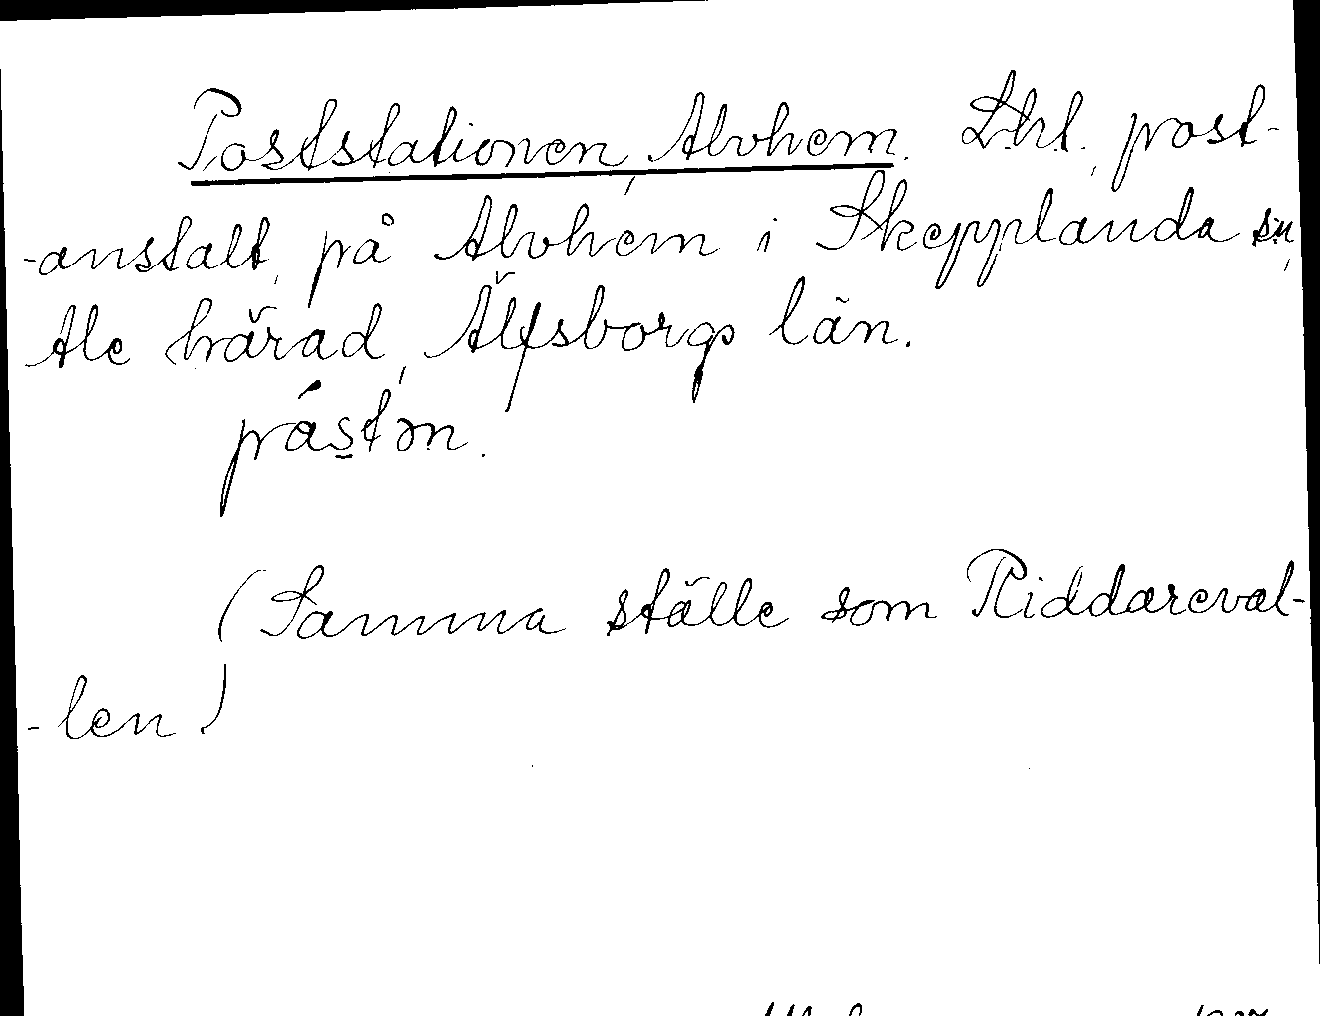 Poststationen, Alvhem. Lht, post-
-anstalt, på Alvhem i Skepplanda sn,
Ale härad, Älfsborgs län.
pástən.
(Samma ställe som Riddareval-
-len)